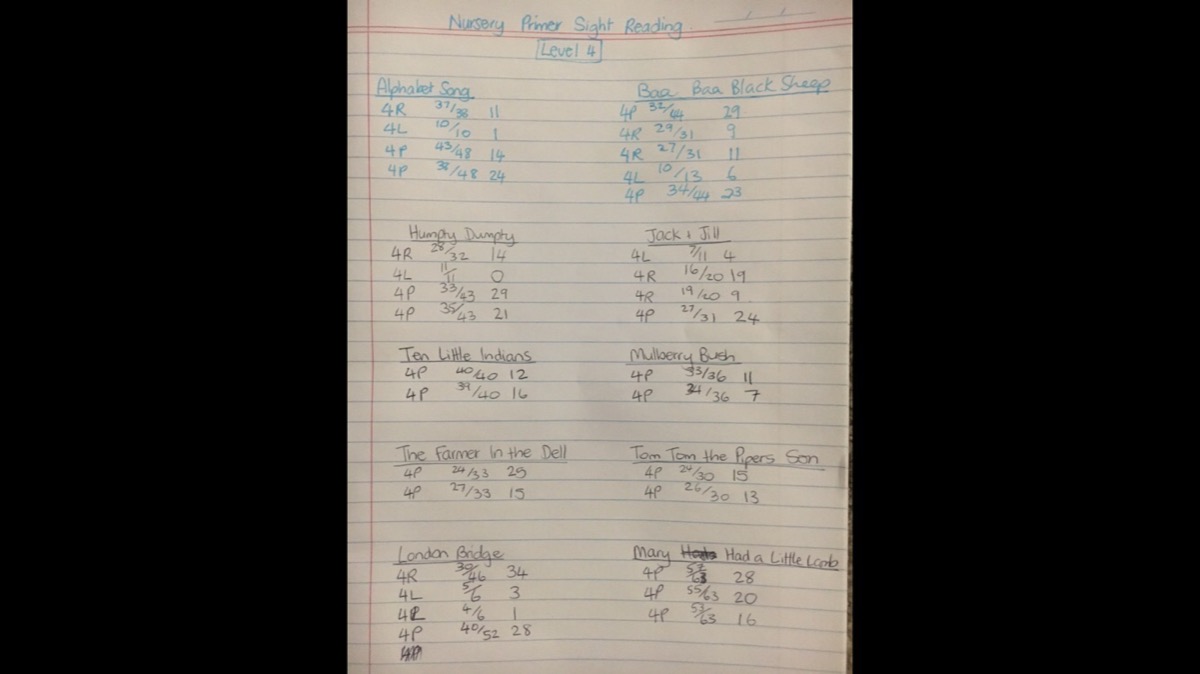 Nursery Primer Sight Reading
Level 4
Alphabet Song
4R 37/38 11
4L 10/10 1
4P 43/48 14
4P 38/48 24
Baa Baa Black Sheep
4P 32/44 29
4R 29/31 9
4R 27/31 11
4L 10/13 6
4P 34/44 23
Humpty Dumpty
4R 28/32 14
4L 11/11 0
4P 33/43 29
4P 35/43 21
Jack & Jill
4L 7/11 4
4R 16/20 19
4R 19/20 9
4P 27/31 24
Ten Little Indians
4P 40/40 12
4P 39/40 16
Mulberry Bush
4P 33/36 11
4P 34/36 7
The Farmer In the Dell
4P 24/33 25
4P 27/33 15
Tom Tom the Pipers Son
4P 24/30 15
4P 26/30 13
London Bridge
4R 39/46 34
4L 5/6 3
4L 4/6 1
4P 40/52 28
Mary Had a Little Lamb
4P 28
4P 55/63 20
4P 53/63 16